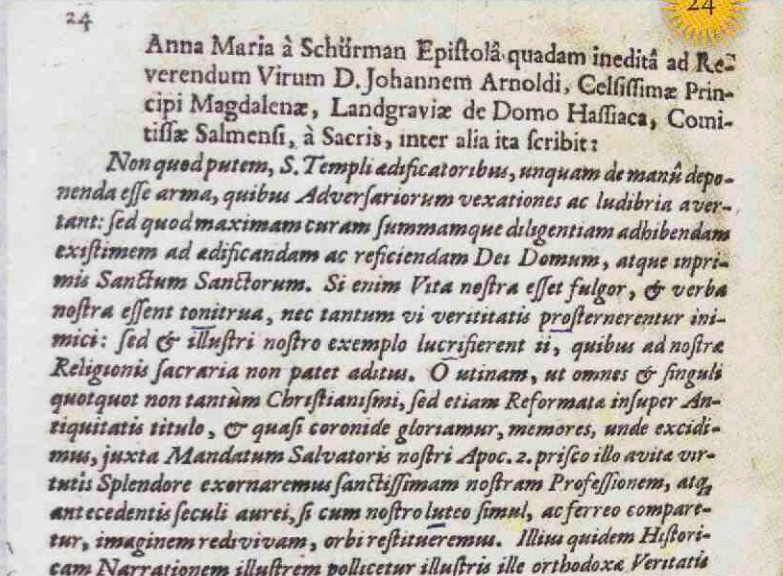 24
24
Anna Maria à Schürman Epiſtolâ quadam ineditâ ad Re-
verendum Virum D. Johannem Arnoldi, Celſiſſimæ Prin-
cipi Magdalenæ, Landgraviæ de Domo Haſſiaca, Comi-
tiſſæ Salmenſi, à Sacris, inter alia ita ſcribit:
Non quod putem, S. Templi ædificatoribus, unquam de manû depo-
nenda eſſe arma, quibus Adverſariorum vexationes ac ludibria aver-
tant: ſed quod maximam curam ſummamque diligentiam adhibendam
exiſtimem ad ædificandam ac reficiendam Dei Domum, atque inpri-
mis Sanctum Sanctorum. Si enim Vita noſtra eſſet fulgor, & verba
noſtra eſſent tonitrua, nec tantum vi verititatis proſternerentur ini-
mici: ſed & illuſtri noſtro exemplo lucrifierent ii, quibus ad noſtræ
Religionis ſacraria non patet aditus. O utinam, ut omnes & ſinguli
quotquot non tantùm Chriſtianiſmi, ſed etiam Reformatæ inſuper An-
tiquitatis titulo, & quaſi coronide gloriamur, memores, unde excidi-
mus, juxta Mandatum Salvatoris noſtri Apoc. 2. priſco illo avitæ vir-
tutis Splendore exornaremus ſanctiſſimam noſtram Profeſſionem, atq;
antecedentis ſeculi aurei, ſi cum noſtro luteo ſimul, ac ferreo compare-
tur, imaginem redivivam, orbi reſtitueremus. Illius quidem Hiſtori-
cam Narrationem illuſtrem pollicetur illuſtris ille orthodoxæ Veritatis